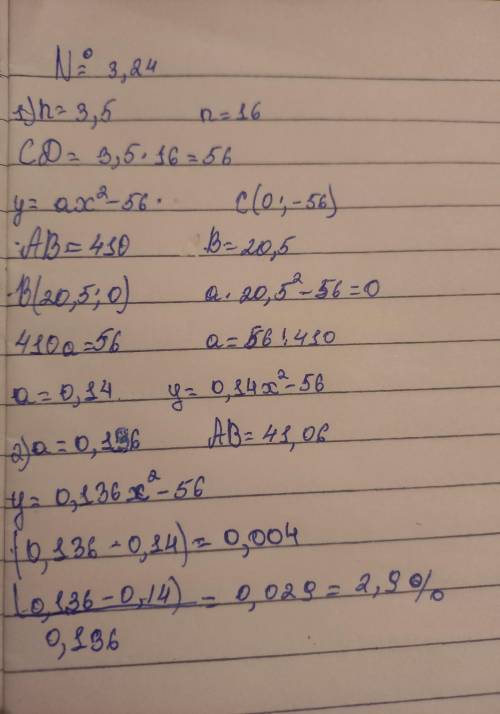 № 3,24
1) h = 3,5 n = 16
CD = 3,5 · 16 = 56
y = ax² - 56 · C(0; -56)
AB = 410 B = 20,5
B(20,5; 0) a · 20,5² - 56 = 0
410a = 56 a = 56 : 410
a = 0,14 y = 0,14x² - 56
2) a = 0,136 AB = 41,06
y = 0,136x² - 56
(0,136 - 0,14) = 0,004
(0,136 - 0,14) = 0,029 = 2,9%
0,136